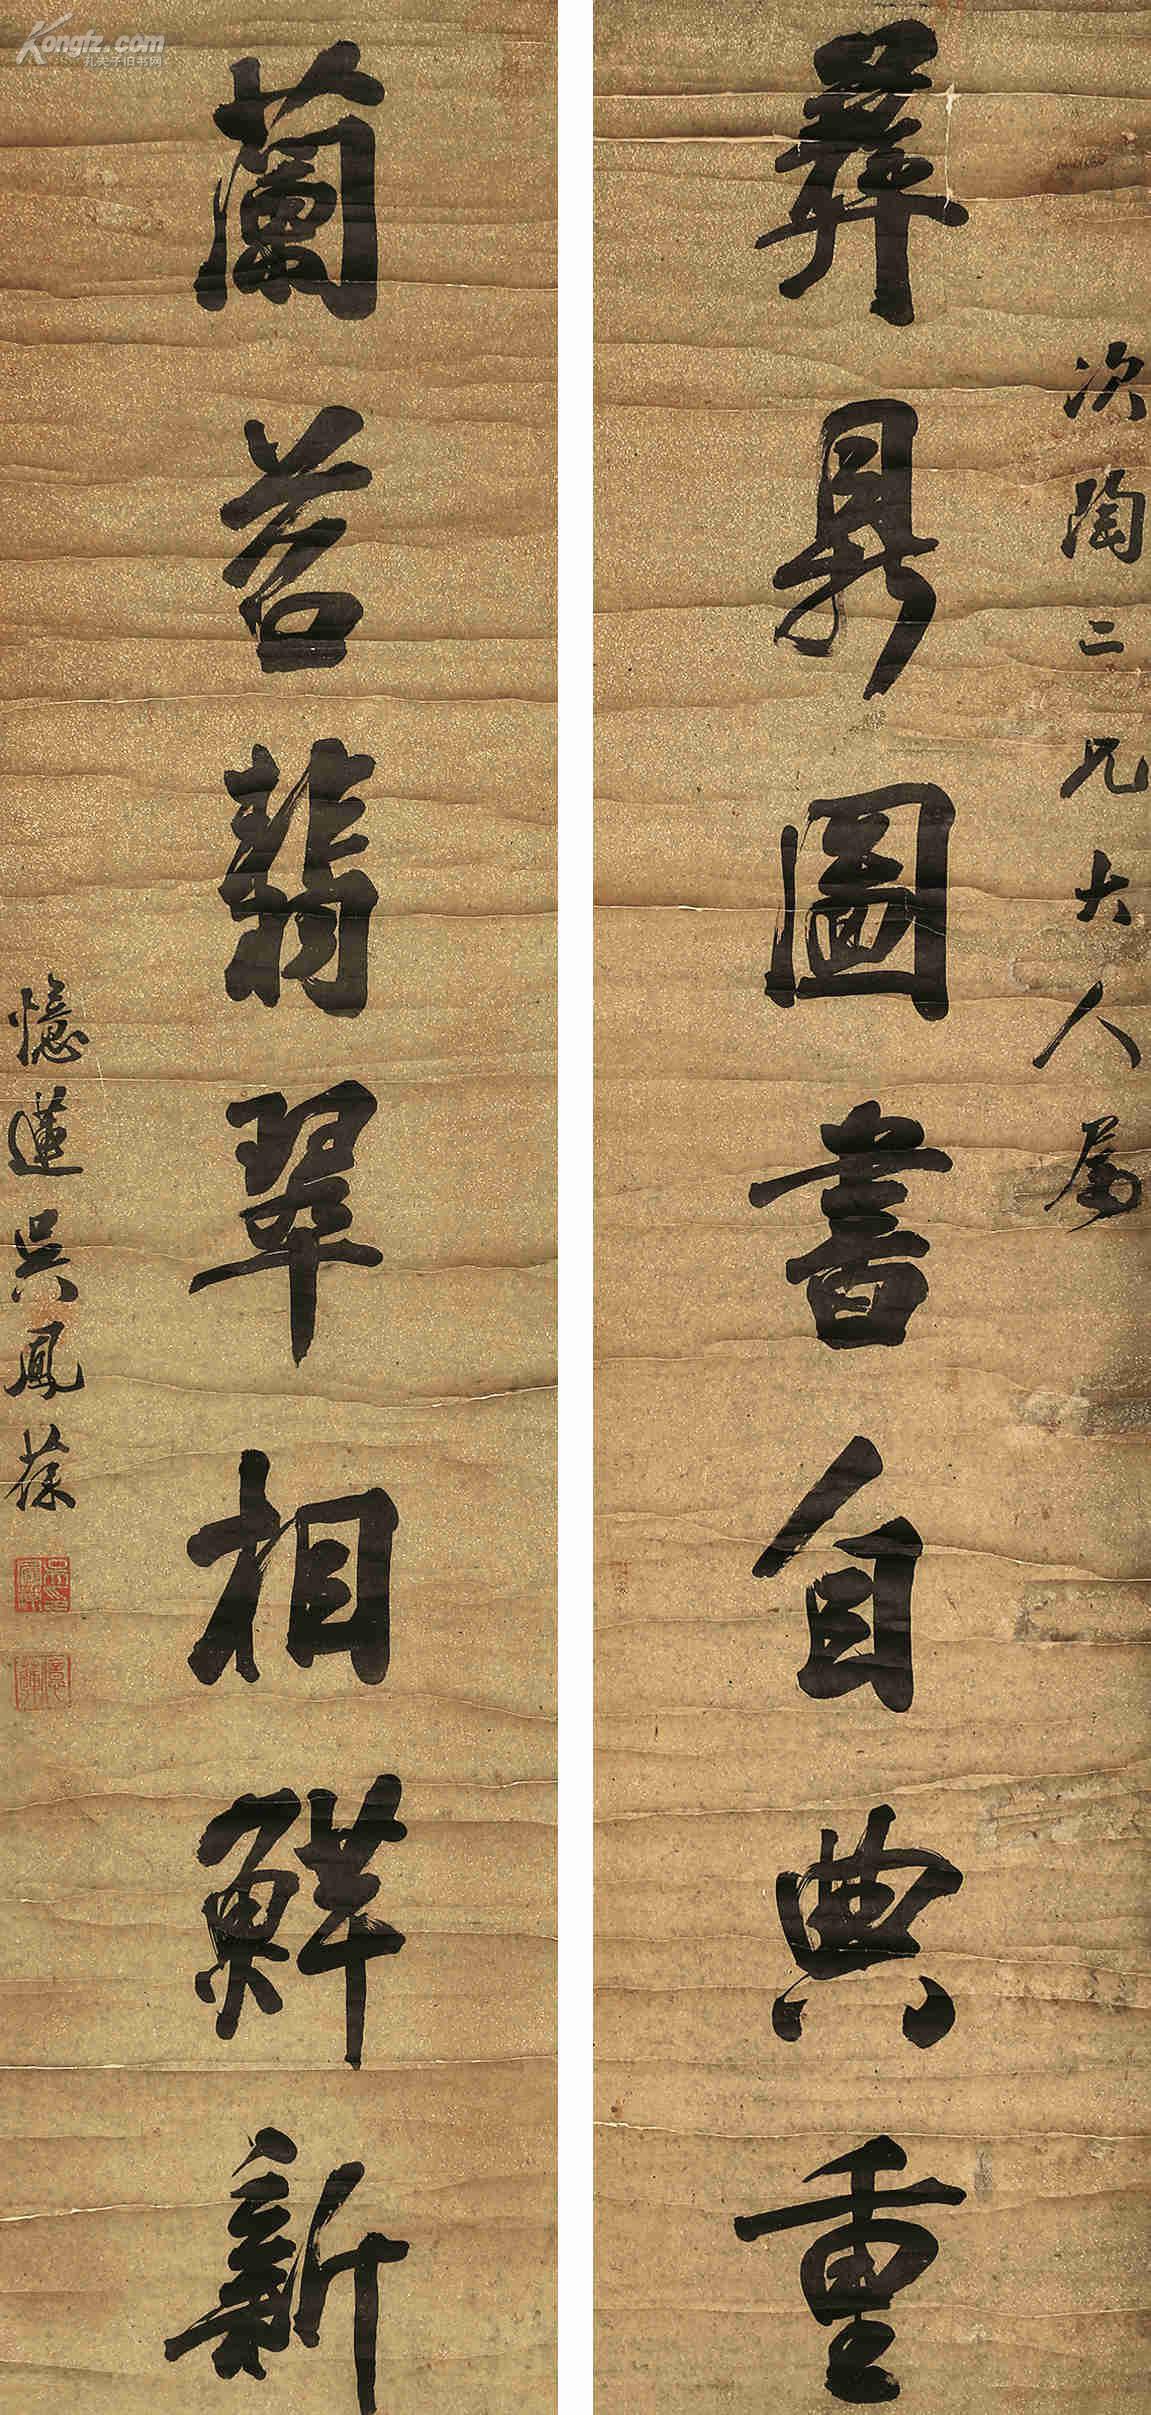 彞鼎圖書自典重
次陶二兄大人屬
蘭苕翡翠相鮮新
憶蓮吳鳳葆
Kongfz.com
孔夫子旧书网